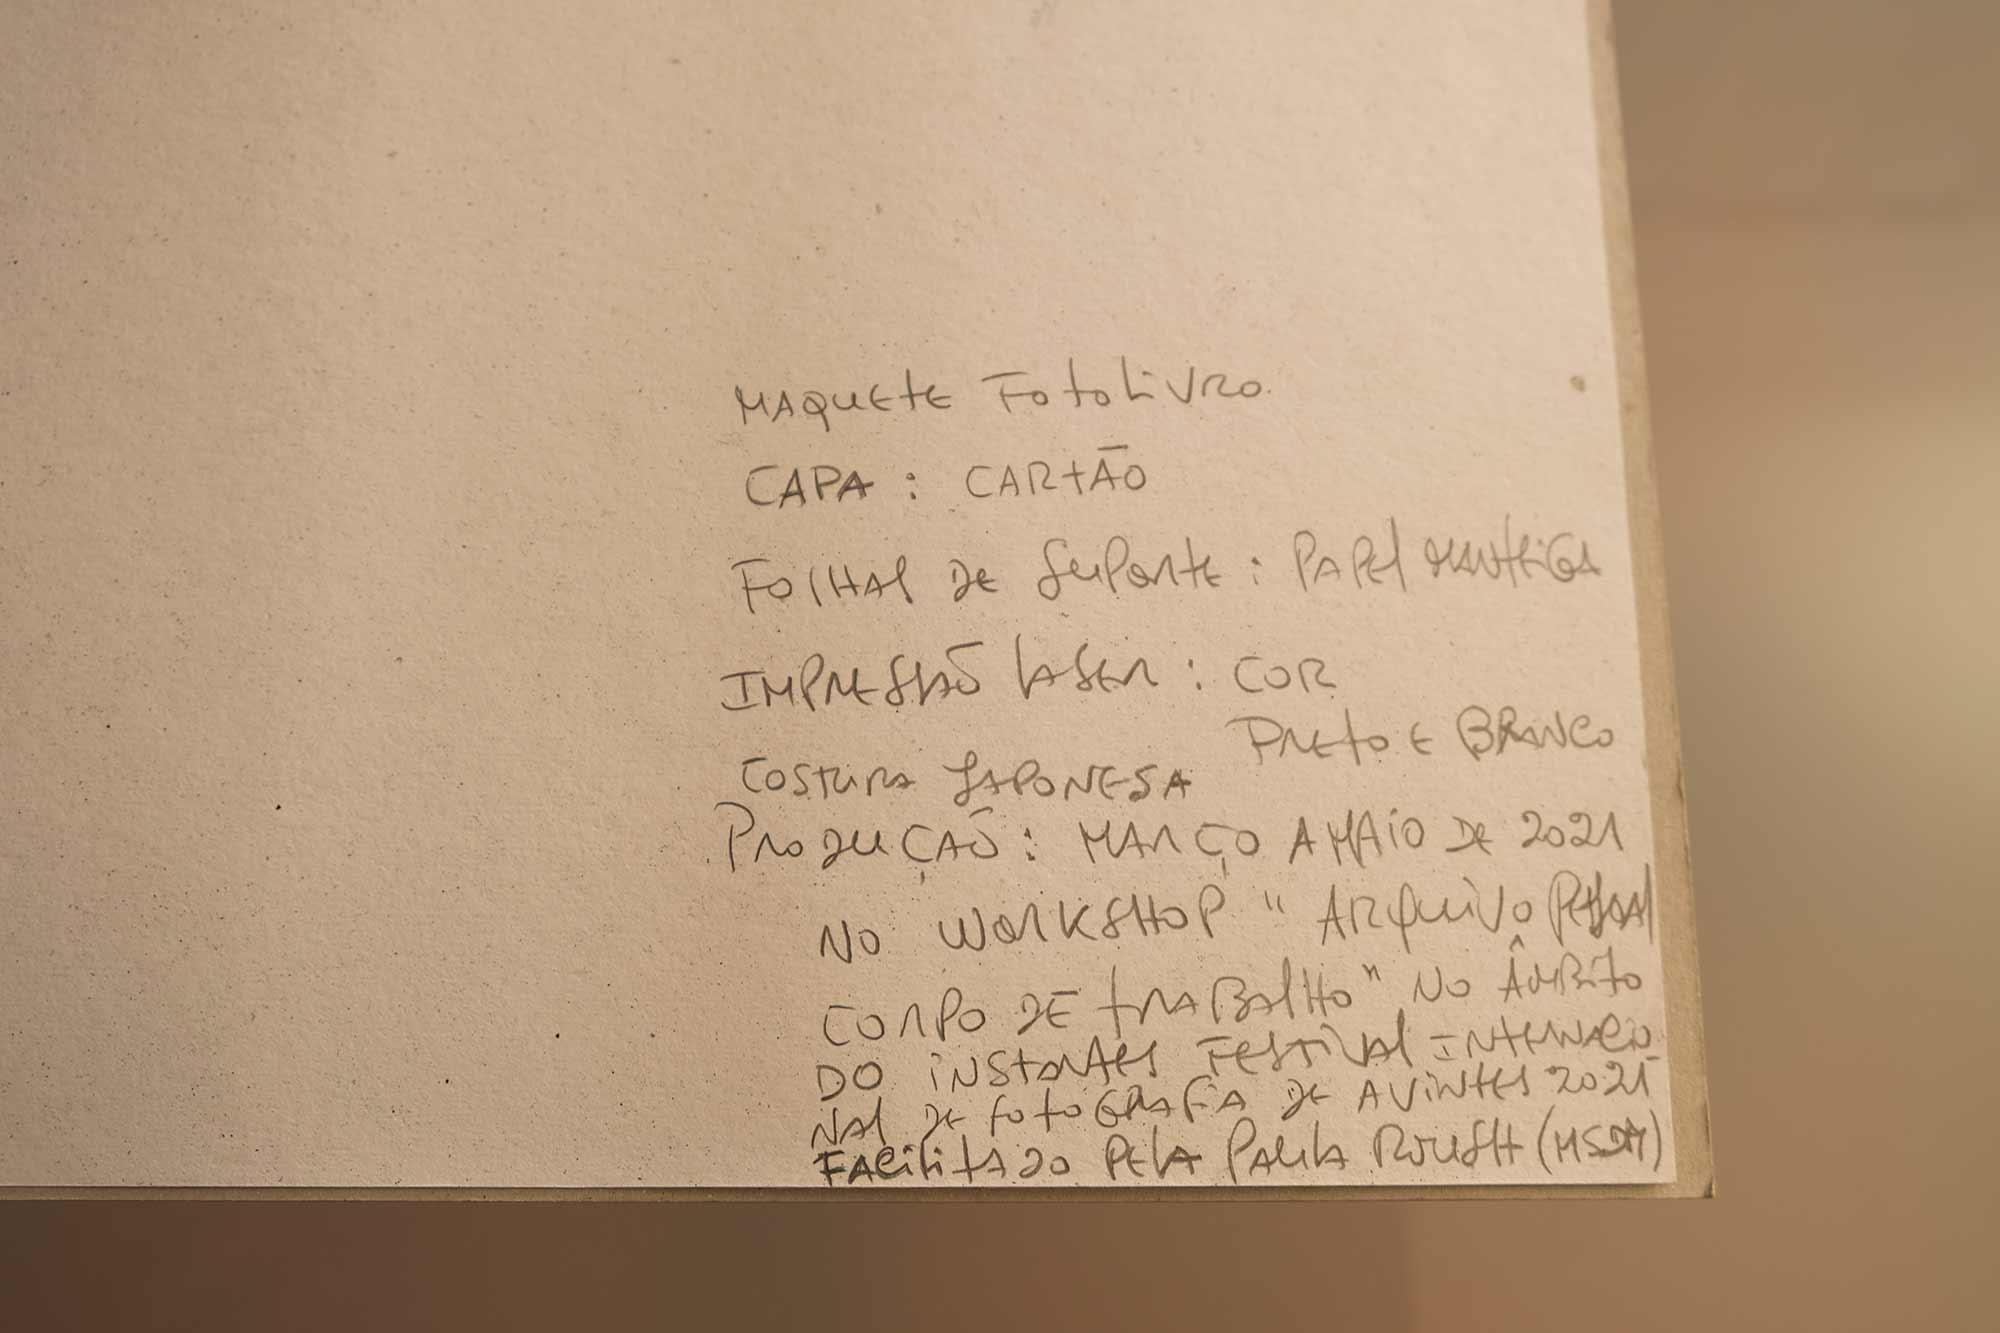 MAQUETE FOTOLIVRO
CAPA : CARTÃO
FOLHAS DE SUPORTE : PAPEL MANTEIGA
IMPRESSÃO LASER : COR
PRETO E BRANCO
COSTURA JAPONESA
PRODUÇÃO : MARÇO A MAIO DE 2021
NO WORKSHOP " ARQUIVO PESSOAL
CORPO DE TRABALHO" NO ÂMBITO
DO INSTANTES FESTIVAL INTERNACIO
NAL DE FOTOGRAFIA DE AVINTES 2021
FACILITADO PELA PAULA ROUSH (MSDM)